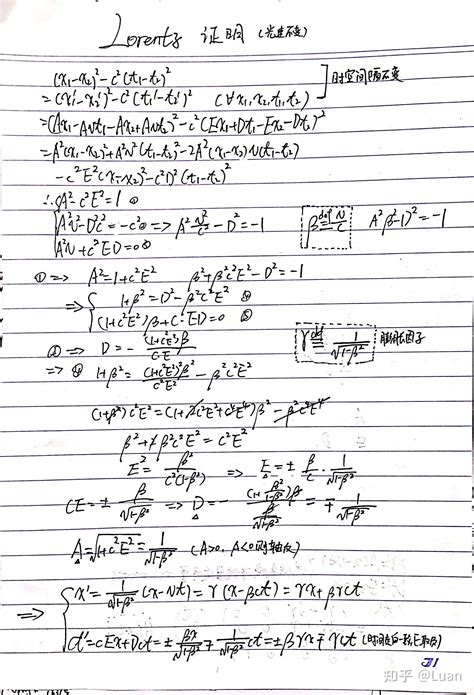 Lorents 证明 (光速不变)
(x₁-x₂)²-c²(t₁-t₂)²
=(x₁'-x₂')²-c²(t₁'-t₂')² (∀x₁,x₂,t₁,t₂) 时空间隔不变
=(Ax₁-ANt₁-Ax₂+ANt₂)²-c²(Ex₁+Dt₁-Ex₂-Dt₂)²
=A²(x₁-x₂)²+A²N²(t₁-t₂)²-2A²(x₁-x₂)N(t₁-t₂)
-c²E²(x₁-x₂)²-c²D²(t₁-t₂)²
∴ A²-c²E²=1 ①
A²N²-D²c²=-c² ② => A² N²/c² - D²=-1 β def N/c A²β²-D²=-1
A²N+c²ED=0 ③
① => A²=1+c²E² β²+β²c²E²-D²=-1
=> { 1+β²=D²-β²c²E² ④
(1+c²E²)β+c·ED=0 ⑤ γ def 1/√(1-β²) 膨胀因子
=> D=-(1+c²E²)β/(c·E)
=> ④ 1+β²=(1+c²E²)²β²/(c²E²)-β²c²E²
(1+β²)c²E²=(1+2c²E²+c⁴E⁴)β²-β²c⁴E⁴
E²=β²/(c²(1-β²)) => E=±β/c·1/√(1-β²)
cE=±β/√(1-β²) => D=-(1+β²/(1-β²))β/(β/√(1-β²))=∓1/√(1-β²)
A=√(1+c²E²)=1/√(1-β²) (A>0, A<0则轴反)
=> { x'=1/√(1-β²)(x-Nt)=γ(x-βct)=γx+βγct
ct'=cEx+Dct=±βx/√(1-β²)∓1/√(1-β²)ct=±βγx∓γct
知乎 @Luan